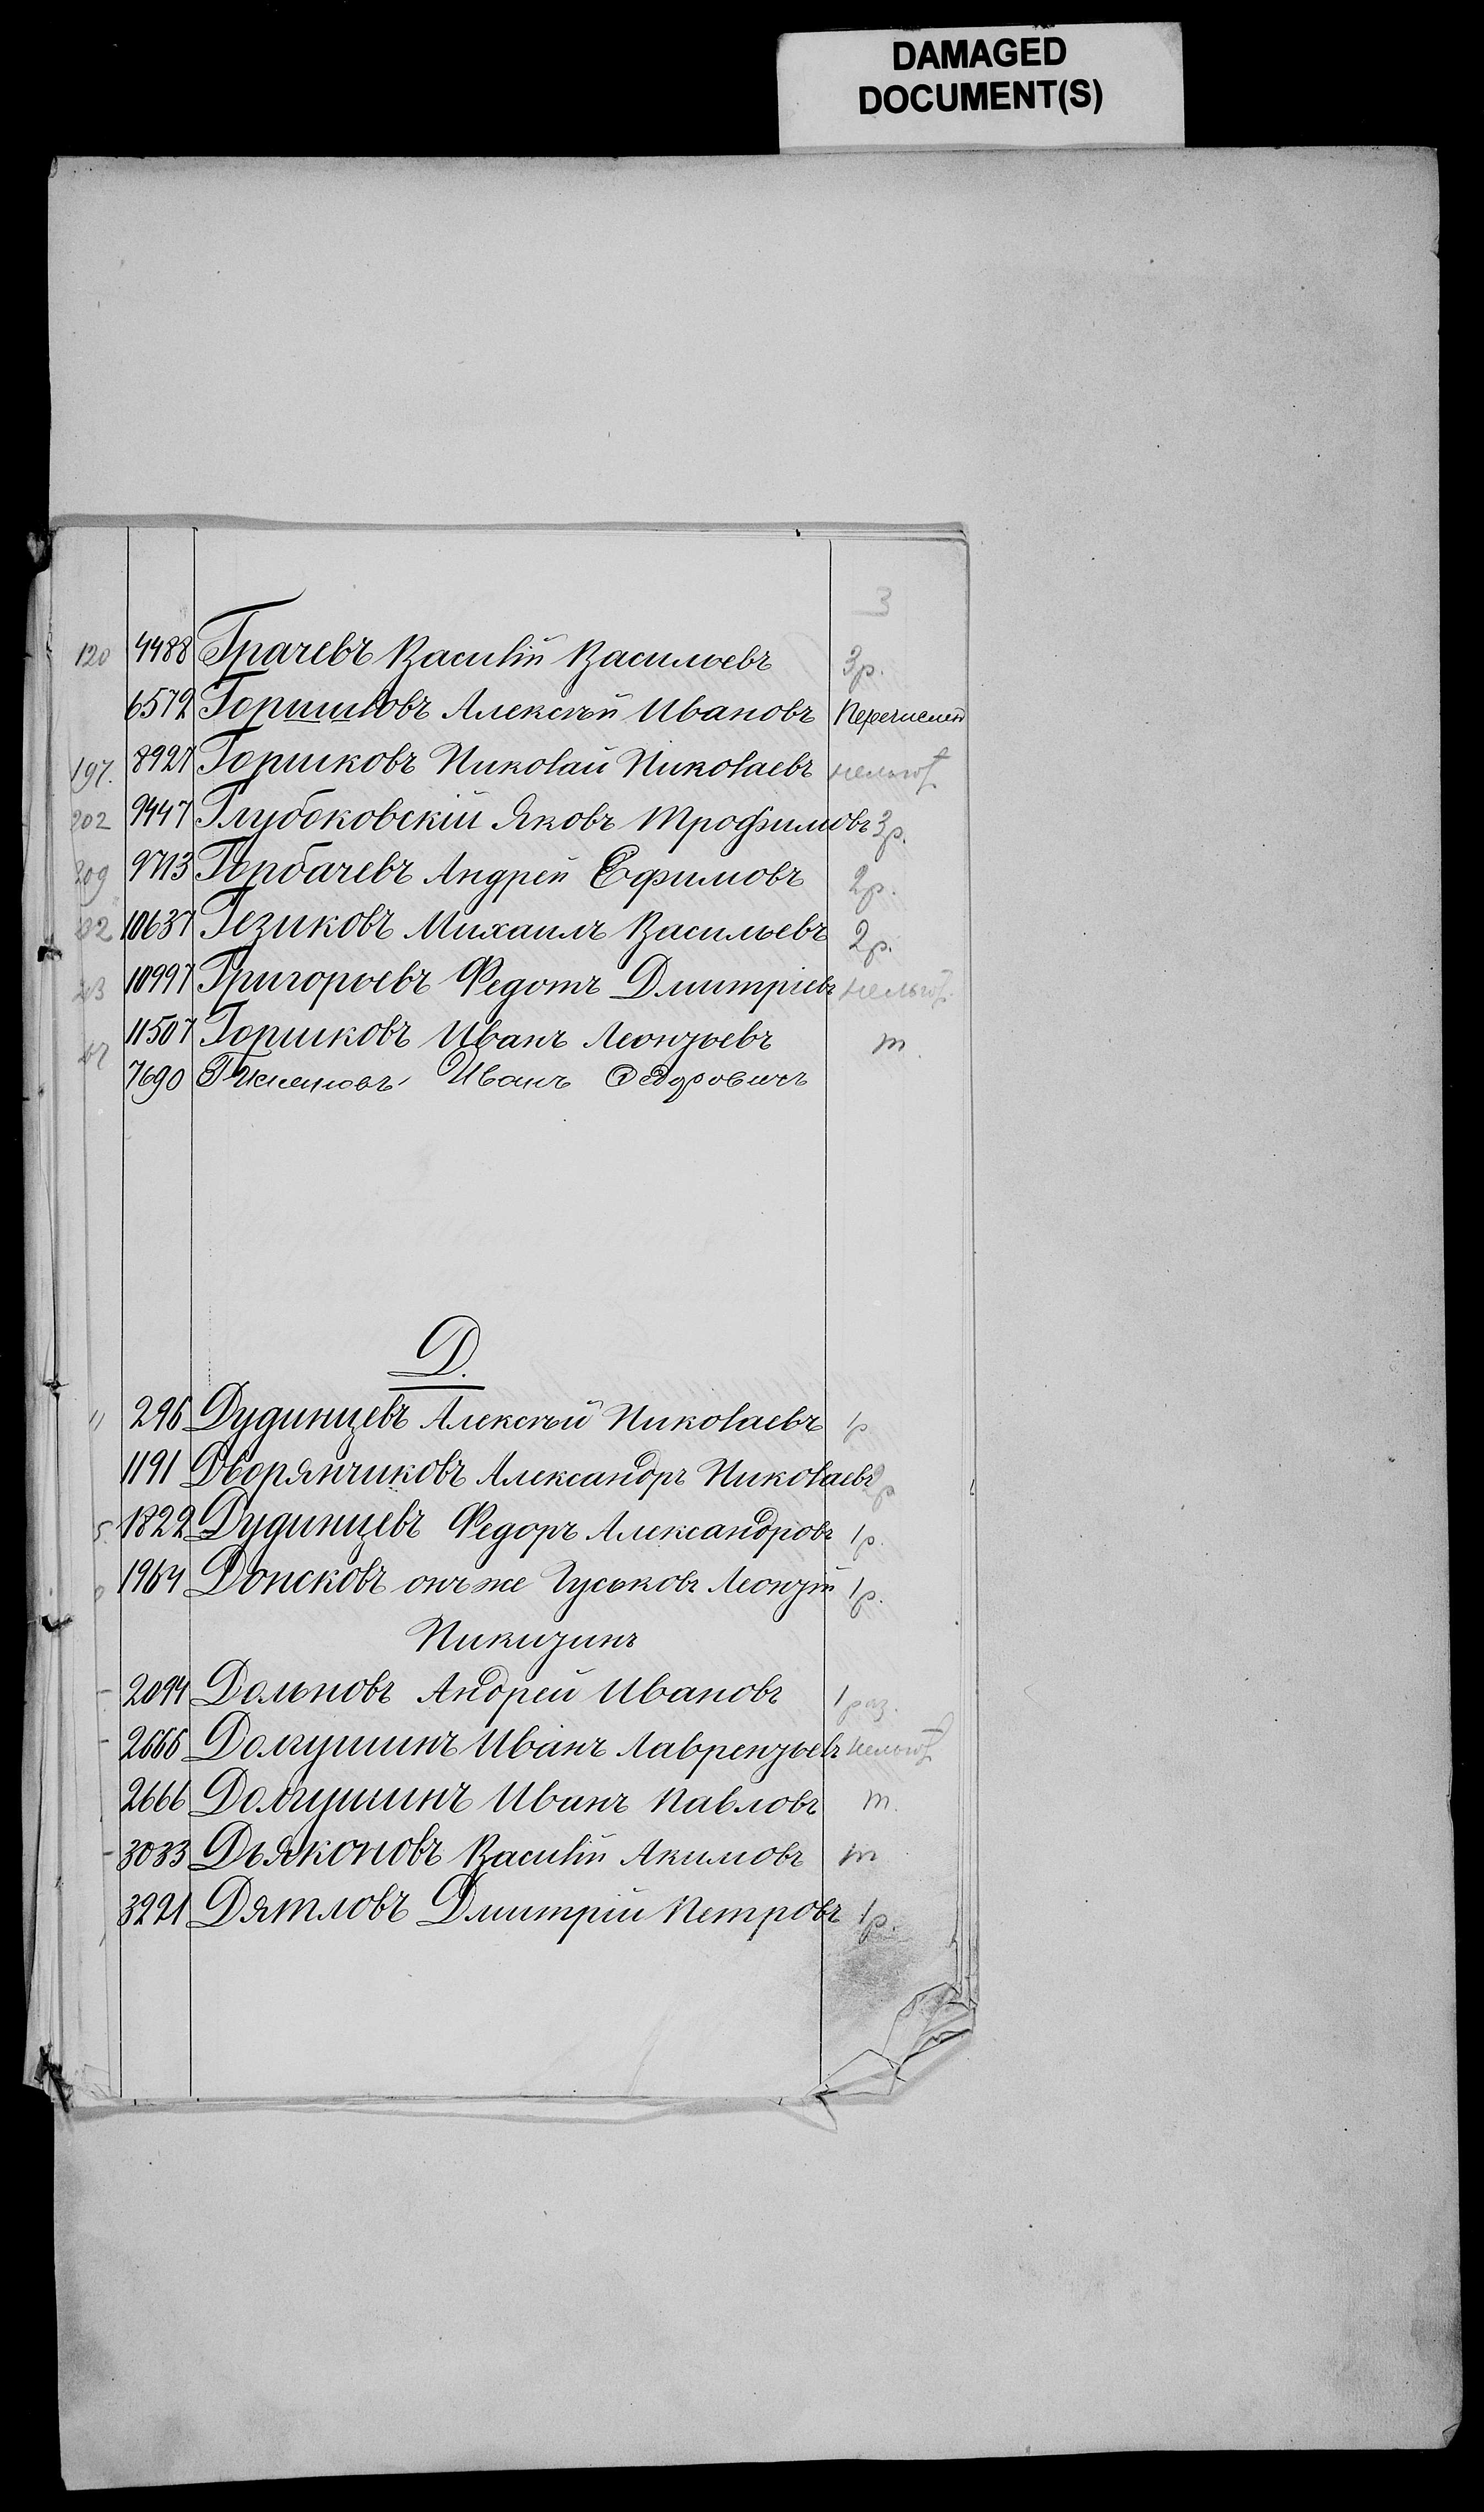 DAMAGED
DOCUMENT(S)
3
120 4488 Грачевъ Василій Васильевъ 3р.
6572 Горшковъ Алексѣй Ивановъ Перечислен
197. 8927 Горшковъ Николай Николаевъ нельгот.
202 9447 Глубоковскій Яковъ Трофимовъ 3р.
209 9713 Горбачевъ Андрей Ефимовъ 2р.
10637 Гезиковъ Михаилъ Васильевъ 2р.
10997 Григорьевъ Федотъ Дмитріевъ нельгот.
11507 Горшковъ Иванъ Леонтьевъ т.
7690 Иванъ Федоровичъ
Д.
11 296 Дудинцевъ Алексѣй Николаевъ 1р
1191 Дворянчиковъ Александръ Николаевъ 2р
5. 1822 Дудинцевъ Федоръ Александровъ 1р.
1964 Донсковъ онъ же Гуськовъ Леонтій 1р.
Никитинъ
2094 Дольновъ Андрей Ивановъ 1 раз.
2665 Долгушинъ Иванъ Лаврентьевъ нельгот.
2666 Долгушинъ Иванъ Павловъ т.
3033 Дьяконовъ Василій Акимовъ т
3221 Дятловъ Дмитрій Петровъ 1р.